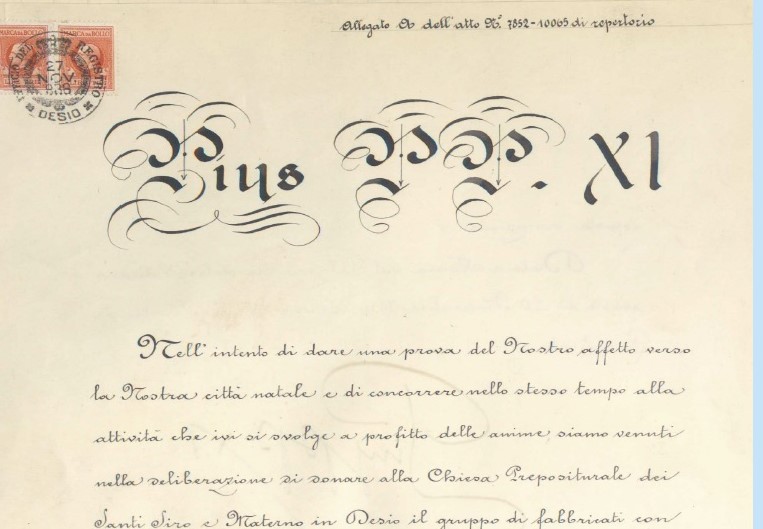 MARCA DA BOLLO MARCA DA BOLLO
REGISTRO
27
NOV
DESIO
Allegato A dell'atto N.º 7852-10065 di repertorio
Pius PP. XI
Nell'intento di dare una prova del Nostro affetto verso
la Nostra città natale e di concorrere nello stesso tempo alla
attività che ivi si svolge a profitto delle anime, siamo venuti
nella deliberazione di donare alla Chiesa Prepositurale dei
Santi Siro e Materno in Desio il gruppo di fabbricati con